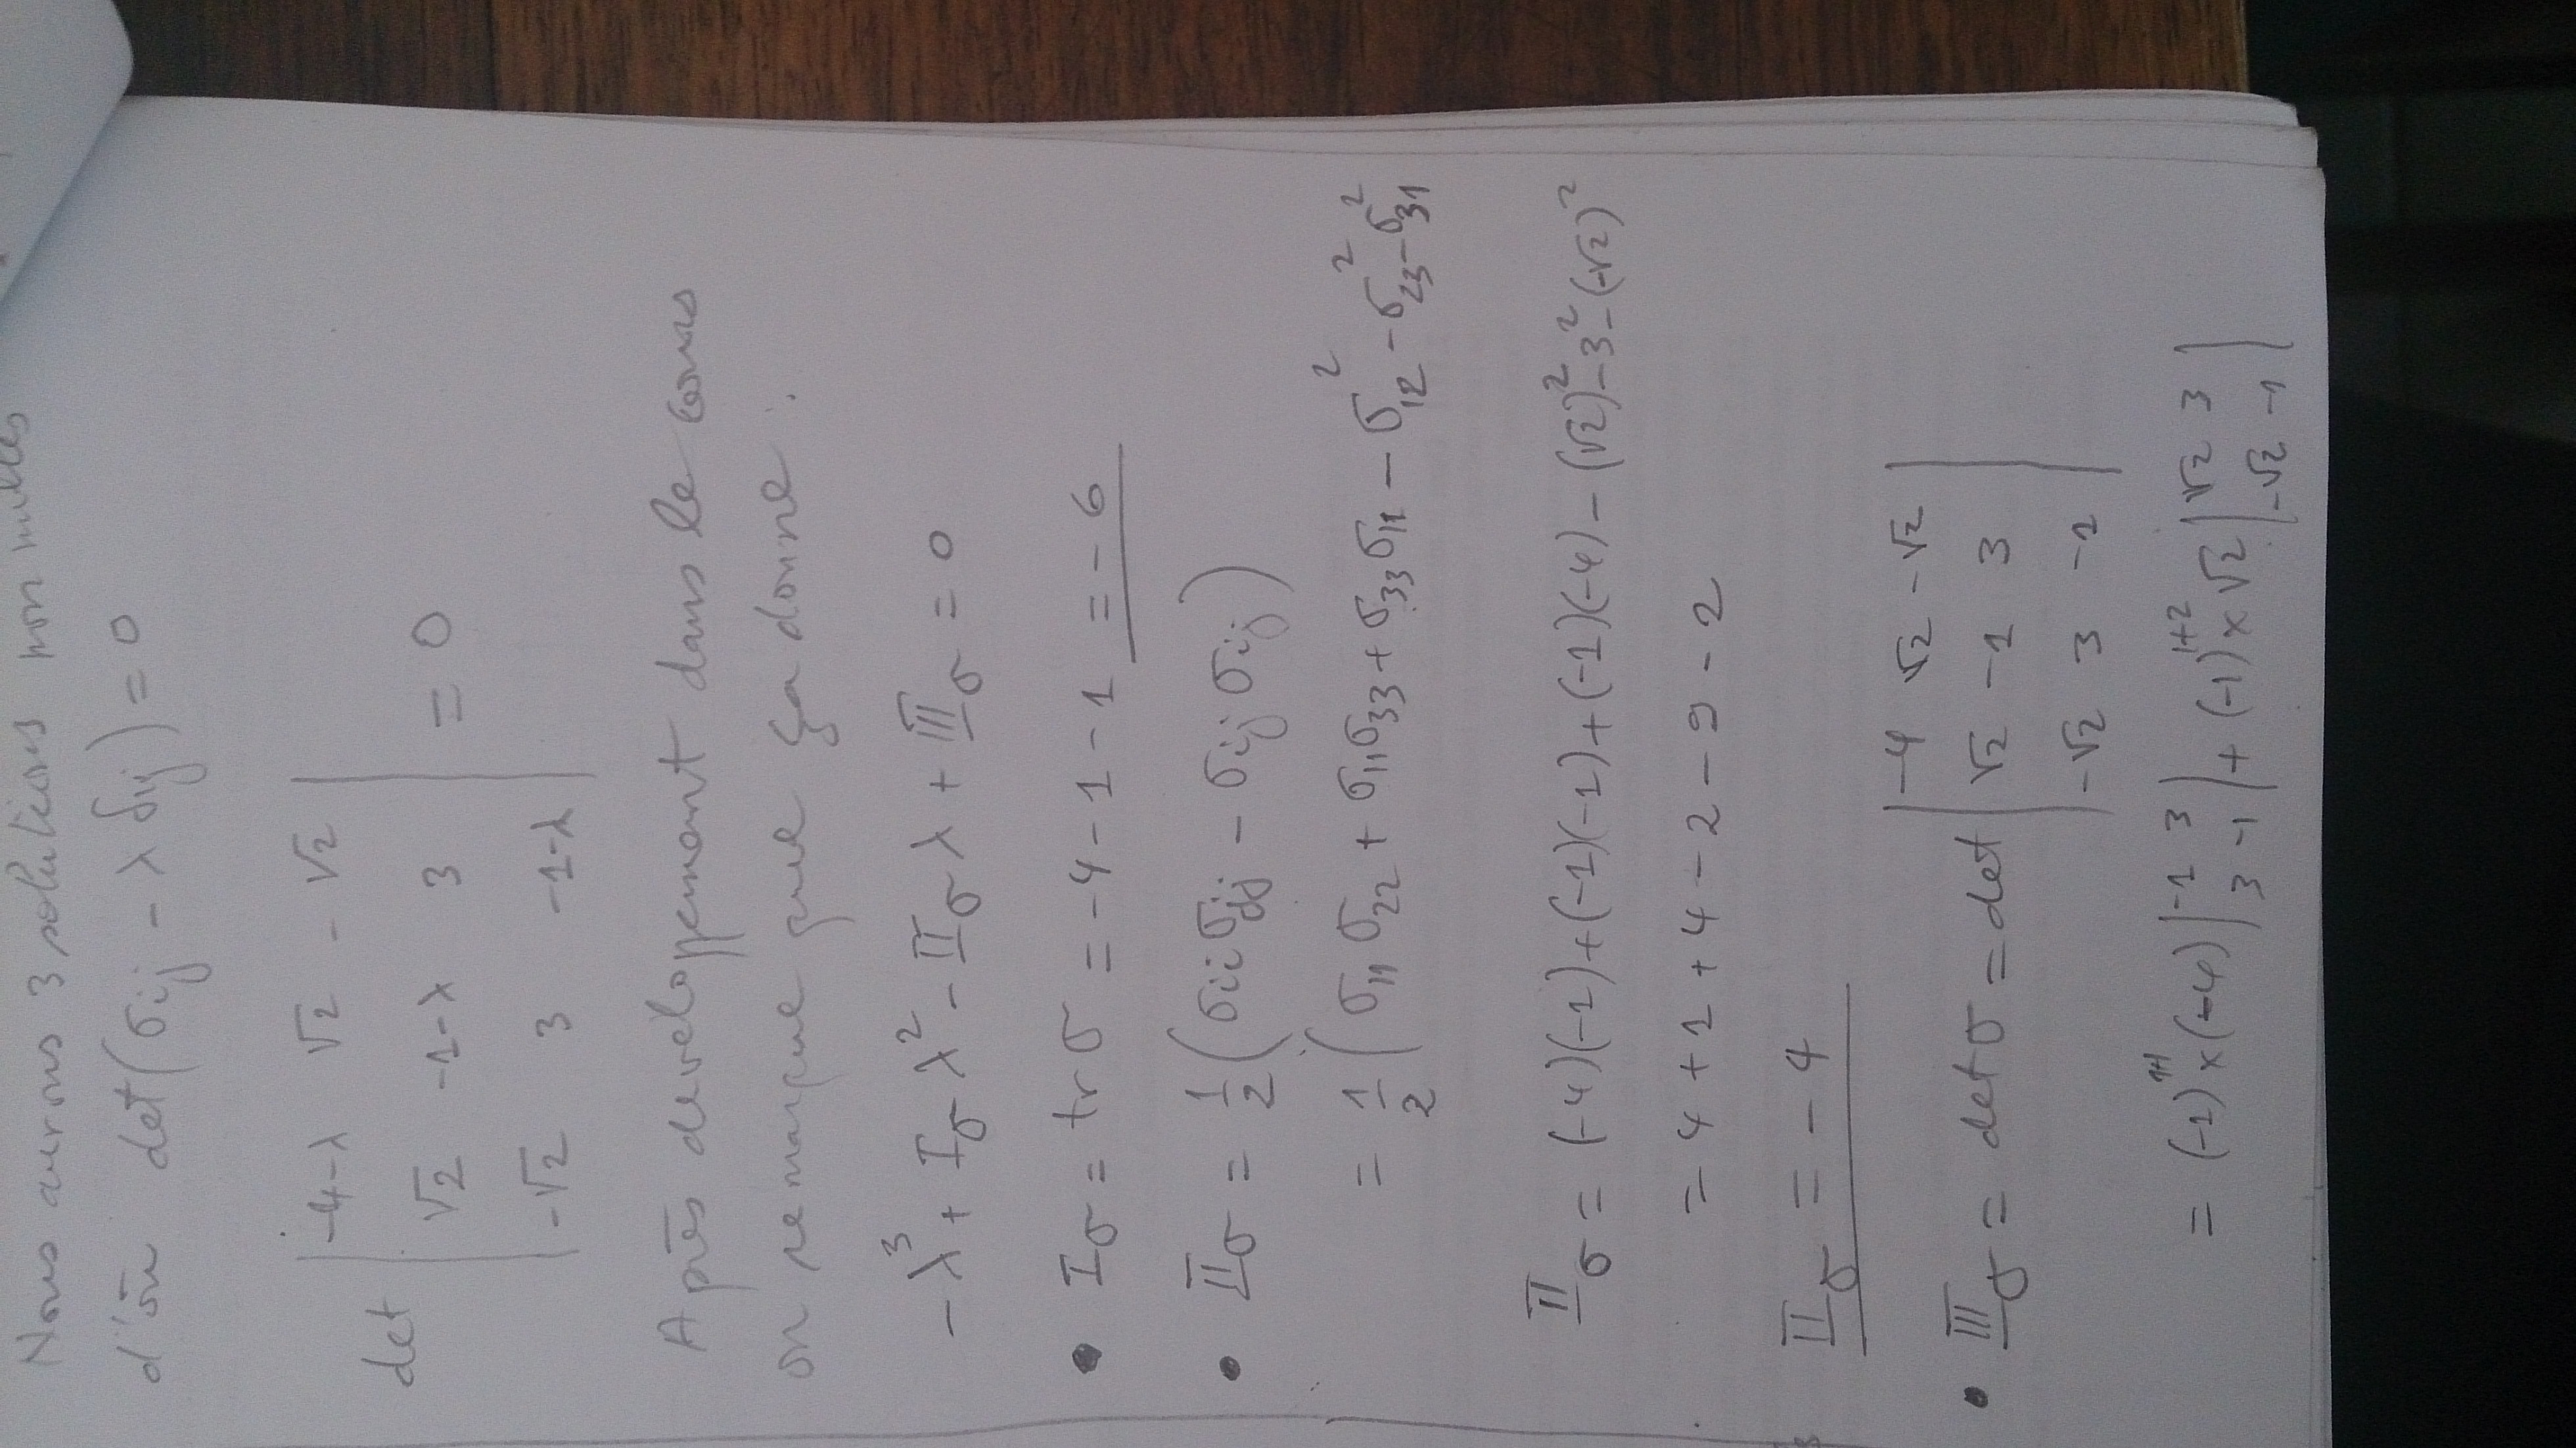 Nous aurons 3 solutions non nulles
d'où det(σij - λ δij) = 0
-4-λ √2 -√2
det √2 -1-λ 3 = 0
-√2 3 -1-λ
Après developpement dans le cours
on remarque que ça donne :
-λ³ + Iσ λ² - IIσ λ + IIIσ = 0
• Iσ = tr σ = -4-1-1 = -6
• IIσ = 1/2 (σii σjj - σij σij)
= 1/2 (σ11 σ22 + σ11 σ33 + σ33 σ11 - σ12² - σ23² - σ31²
IIσ = (-4)(-1)+(-1)(-1)+(-1)(-4)-(√2)²-3²-(-√2)²
= 4+1+4-2-9-2
IIσ = -4
-4 √2 -√2
• IIIσ = det σ = det √2 -1 3
-√2 3 -1
= (-1)¹⁺¹ x (-4) |-1 3| + (-1)¹⁺² x √2 |√2 3|
3 -1 -√2 -1